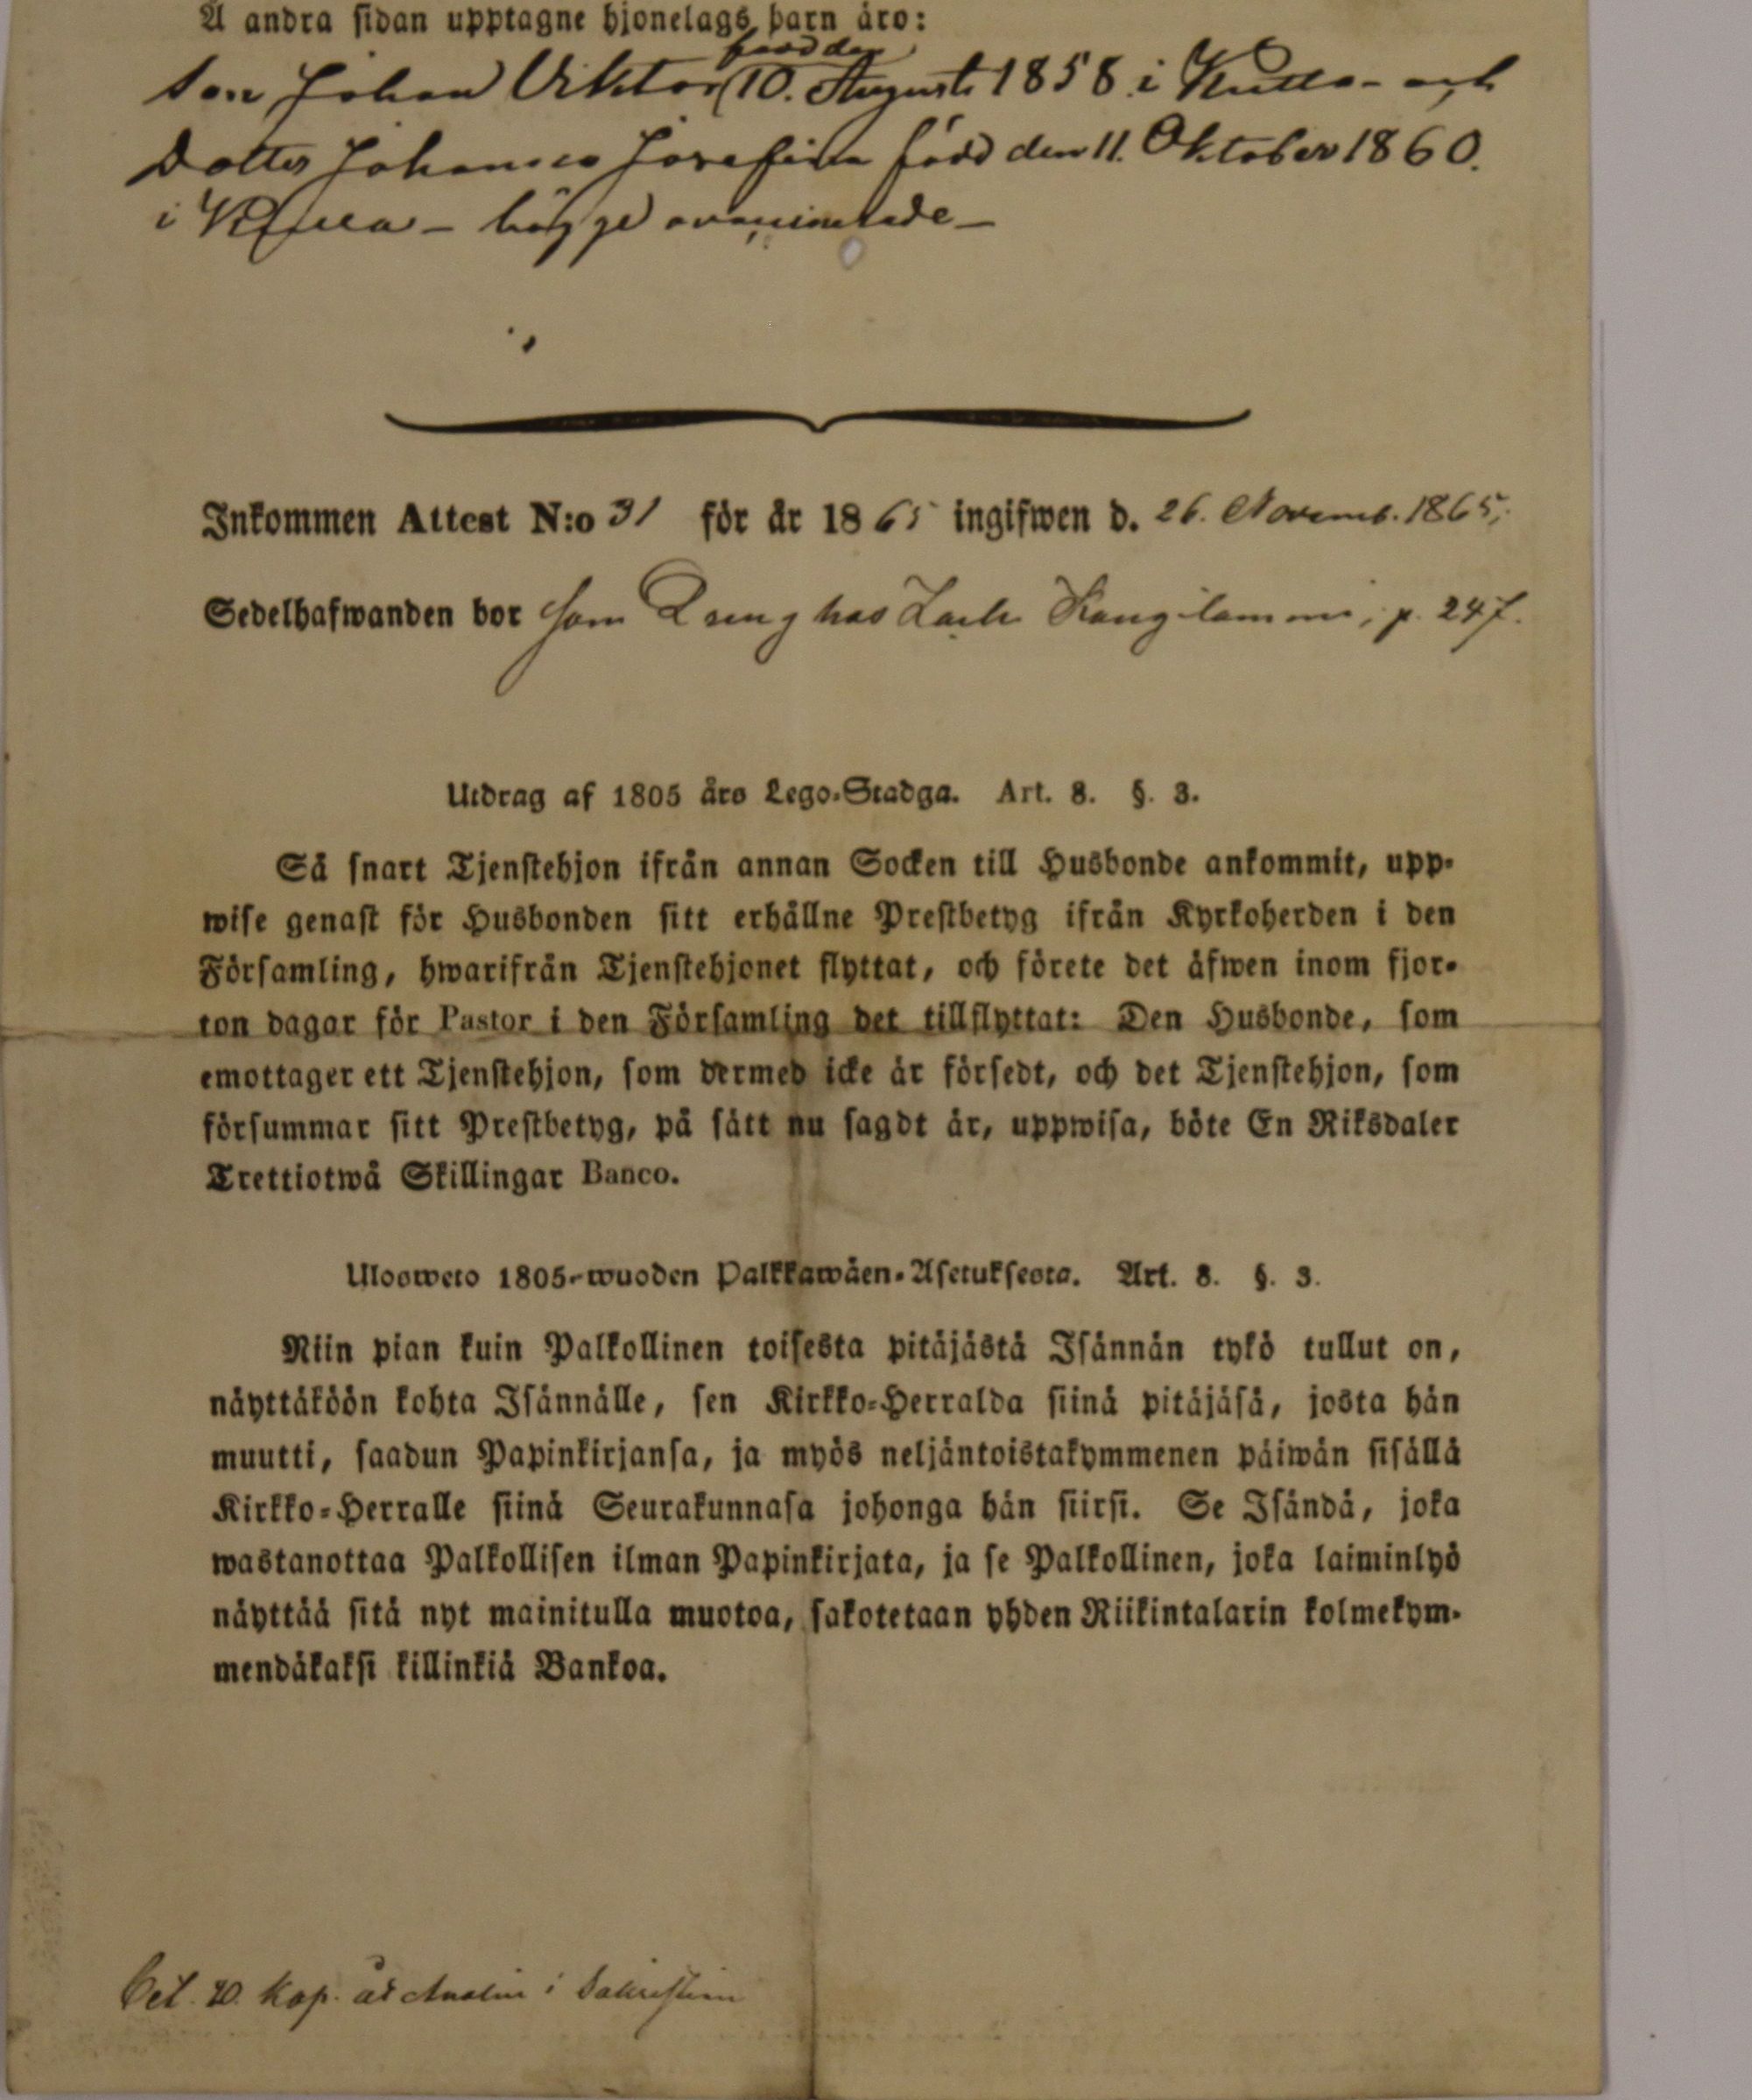 Å andra sidan upptagne hjonelags barn äro:
född den
Son Johan Viktor 10. Augusti 1858 i
Dotter Johanna Josefina född den 11. Oktober 1860.
i bägge
Inkommen Attest N:o 31 för år 1865 ingifwen d. 26. Novemb. 1865.
Sedelhafwanden bor som Dreng hos Kangilammi, p. 247.
Utdrag af 1805 års Lego-Stadga. Art. 8. §. 3.
Så snart Tjenstehjon ifrån annan Socken till Husbonde ankommit, upp-
wise genast för Husbonden sitt erhållne Prestbetyg ifrån Kyrkoherden i den
Församling, hwarifrån Tjenstehjonet flyttat, och förete det äfwen inom fjor-
ton dagar för Pastor i den Församling det tillflyttat: Den Husbonde, som
emottager ett Tjenstehjon, som dermed icke är försedt, och det Tjenstehjon, som
försummar sitt Prestbetyg, på sätt nu sagdt är, uppwisa, böte En Riksdaler
Trettiotwå Skillingar Banco.
Ulosweto 1805-wuoden Palkkawäen-Asetuksesta. Art. 8. §. 3.
Niin pian kuin Palkollinen toisesta pitäjästä Isännän tykö tullut on,
näyttäköön kohta Isännälle, sen Kirkko-Herralda siinä pitäjäsä, josta hän
muutti, saadun Papinkirjansa, ja myös neljäntoistakymmenen päiwän sisällä
Kirkko-Herralle siinä Seurakunnasa johonga hän siirsi. Se Isändä, joka
wastanottaa Palkollisen ilman Papinkirjata, ja se Palkollinen, joka laiminlyö
näyttää sitä nyt mainitulla muotoa, sakotetaan yhden Riikintalarin kolmekym-
mendäkaksi killinkiä Bankoa.
Bet. 20. Kop. åt i Sakristian